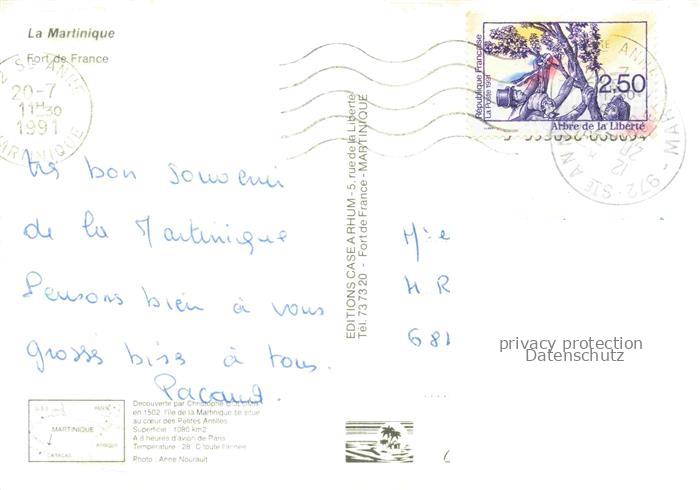 La Martinique
Fort de France
972 STE ANNE
20-7
11H30
1991
MARTINIQUE
République Française
La Poste 1991
2,50
Arbre de la Liberté
972-STE ANNE
très bon souvenir
de la Martinique
Pensons bien à vous
grosses bises à tous.
Pacaud.
EDITIONS CASE A RHUM - 5, rue de la Liberté
Tél. 73 73 20 - Fort de France - MARTINIQUE
4 R
68
privacy protection
Datenschutz
MARTINIQUE
CARACAS
AFRIQUE
PARIS
Découverte par Christophe
en 1502, l'île de la Martinique se situe
au cœur des Petites Antilles
Superficie : 1080 km2
A 8 heures d'avion de Paris
Température : 28° C toute l'année
Photo : Anne Nourault